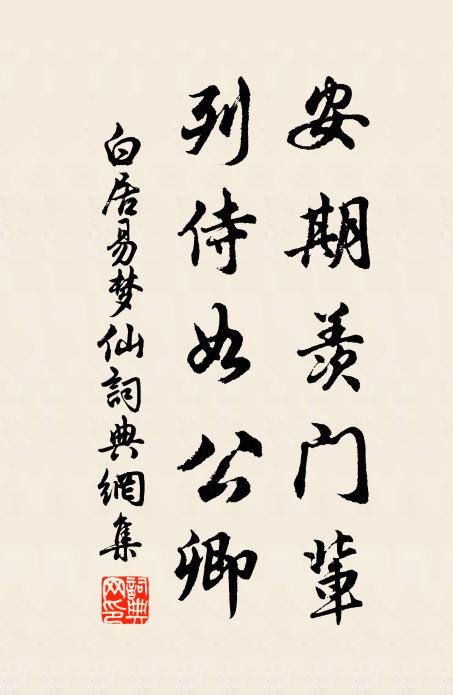 安期羨门輩
列侍如公卿
白居易梦仙詞典網集
詞典网印